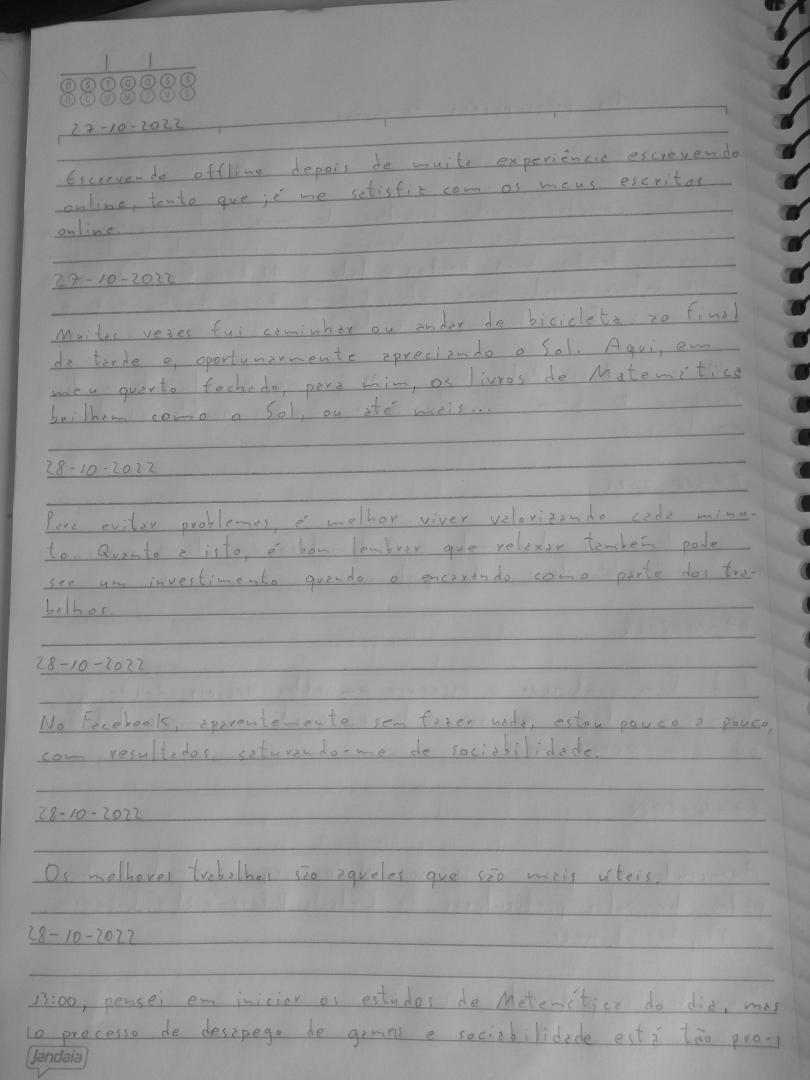 D S T Q Q S S
D L M M J V S
27-10-2022
Escrevendo offline depois de muita experiência escrevendo
online, tanto que já me satisfiz com os meus escritos
online.
27-10-2022
Muitas vezes fui caminhar ou andar de bicicleta ao final
da tarde e, oportunarmente apreciando o Sol. Aqui, em
meu quarto fechado, para mim, os livros de Matemática
brilham como o Sol, ou até mais...
28-10-2022
Para evitar problemas, é melhor viver valorizando cada minu-
to. Quanto a isto, é bom lembrar que relaxar também pode
ser um investimento quando o encarando como parte dos tra-
balhos.
28-10-2022
No Facebook, aparentemente sem fazer nada, estou pouco a pouco,
com resultados, saturando-me de sociabilidade.
28-10-2022
Os melhores trabalhos são aqueles que são mais úteis.
28-10-2022
13:00, pensei em iniciar os estudos de Matemática do dia, mas
o processo de desapego de games e sociabilidade está tão pro-
Jandaia